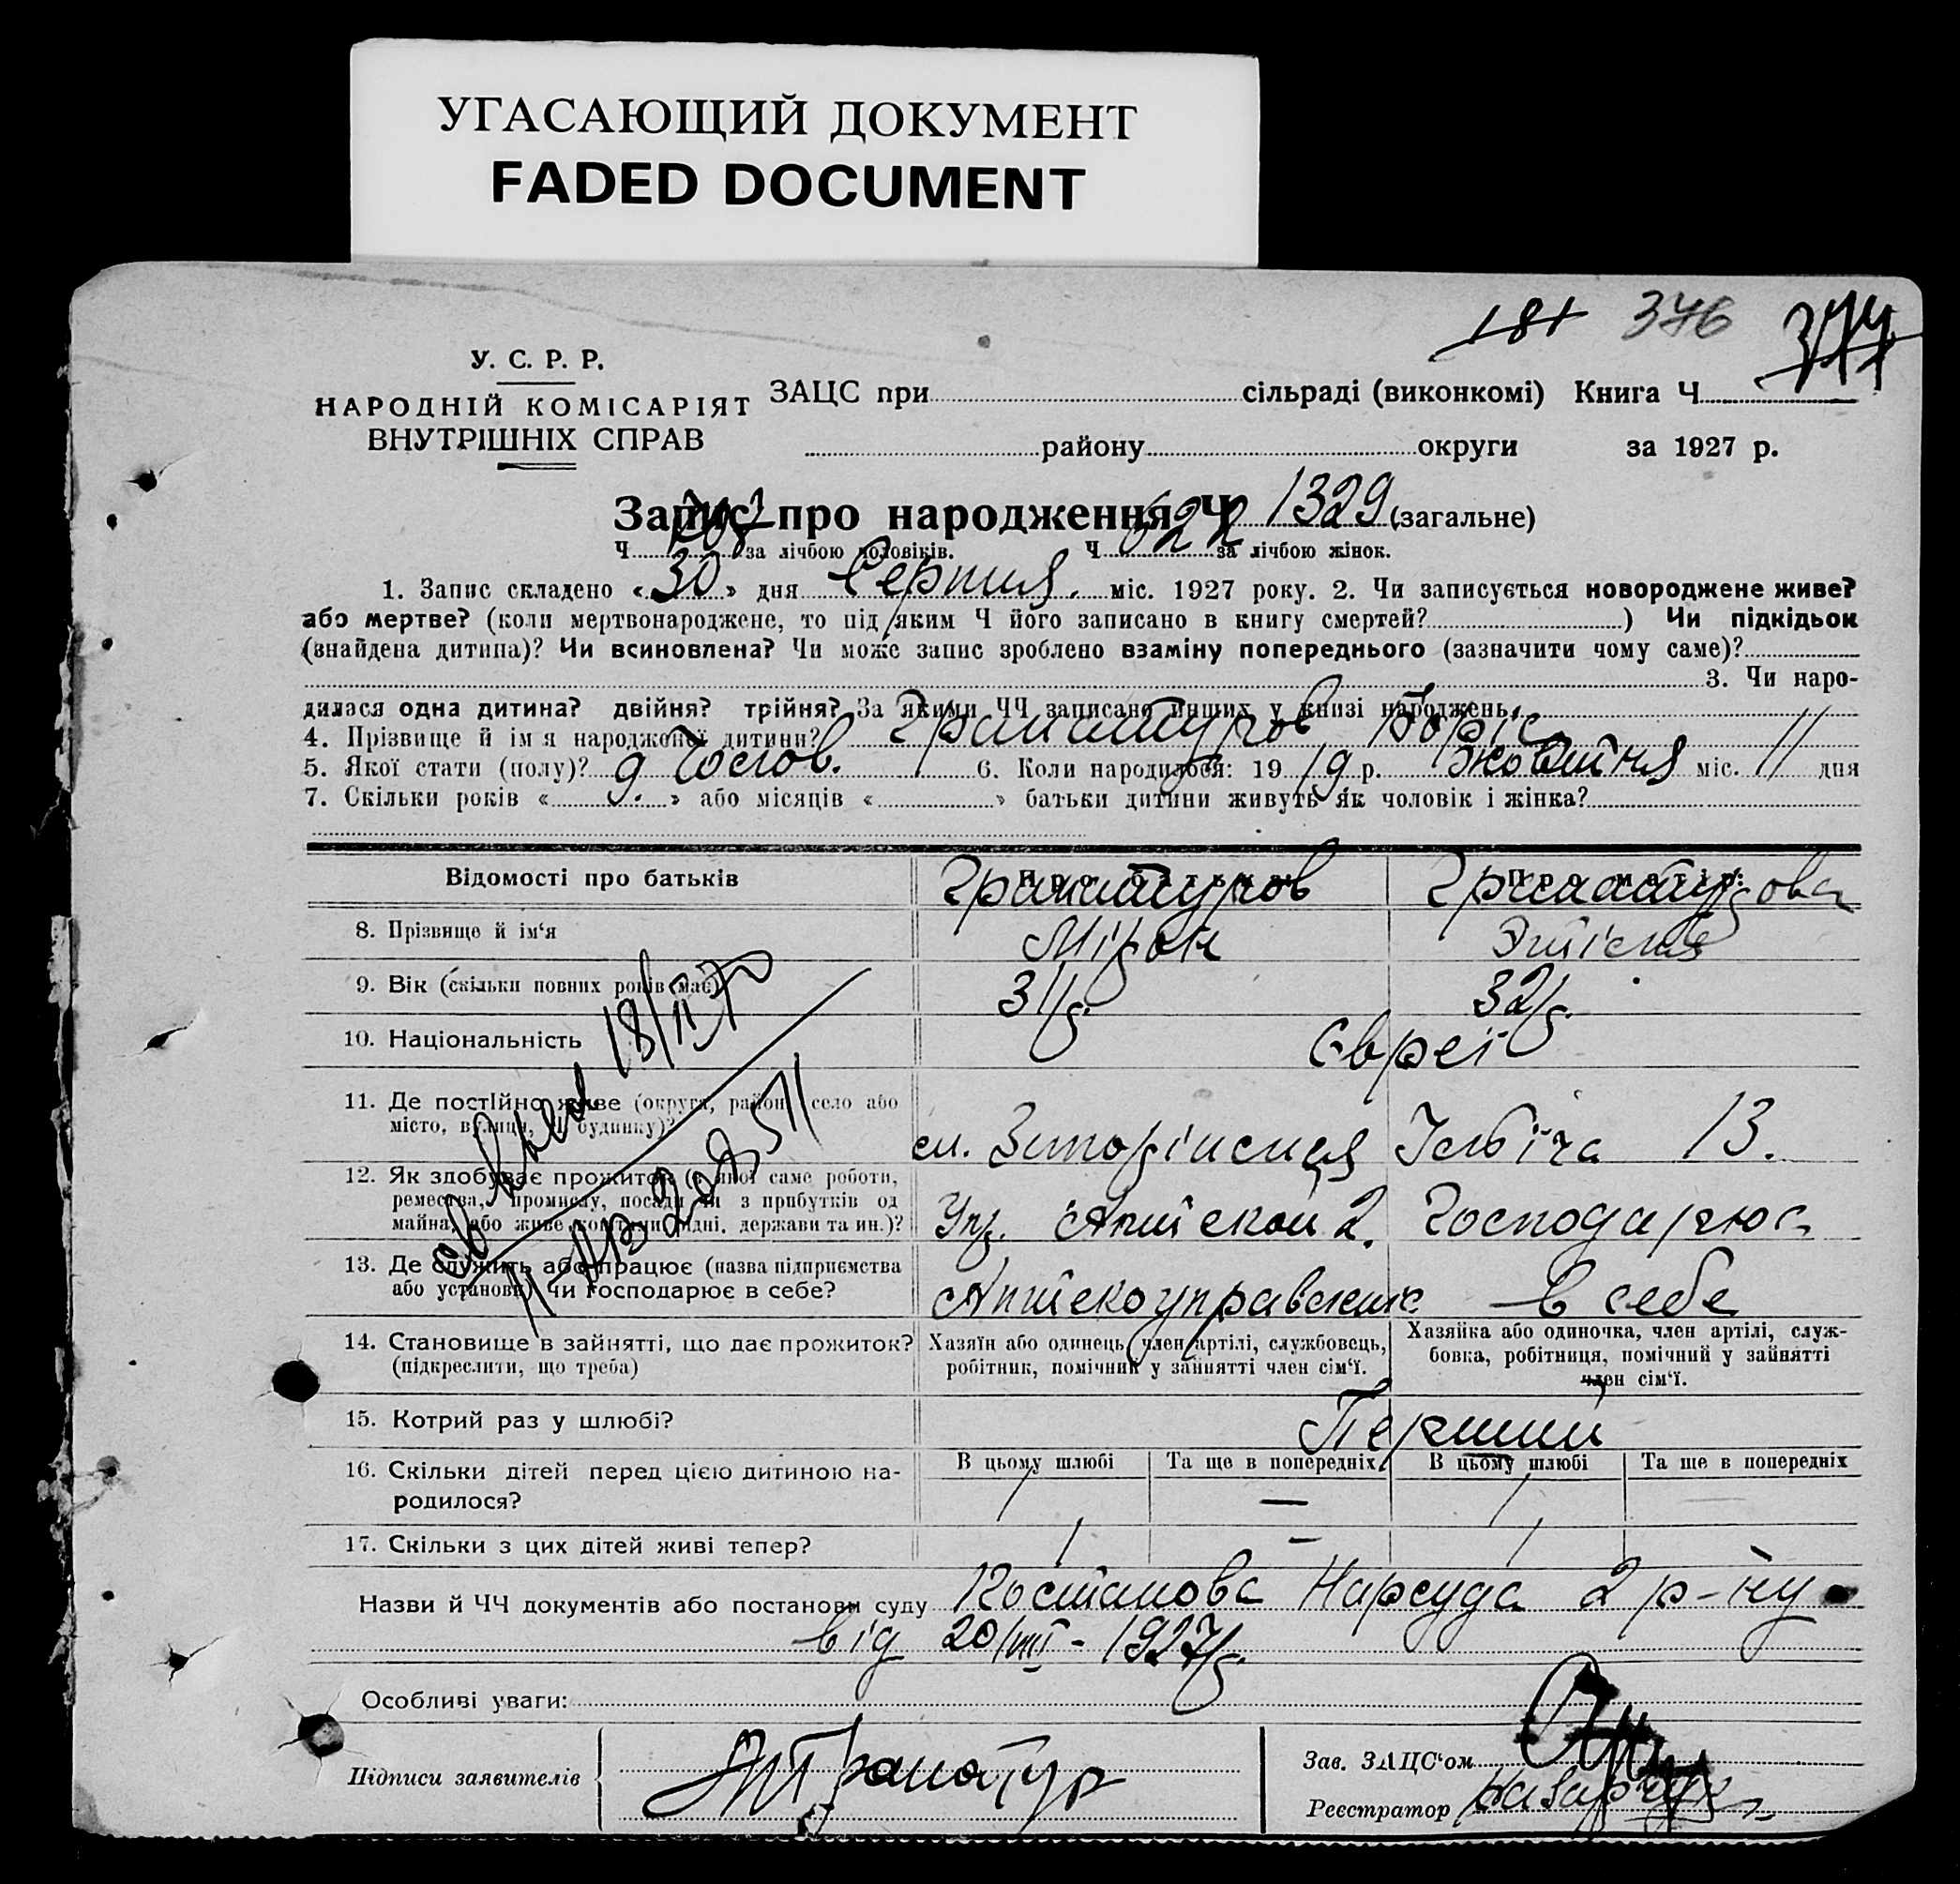 УГАСАЮЩИЙ ДОКУМЕНТ
FADED DOCUMENT
181 376 377
У. С. Р. Р.
НАРОДНІЙ КОМІСАРІЯТ
ВНУТРІШНІХ СПРАВ
ЗАЦС при сільраді (виконкомі) Книга Ч
району округи за 1927 р.
Запис про народження Ч 1329 (загальне)
Ч за лічбою чоловіків. Ч 622 за лічбою жінок.
1. Запис складено « 30 » дня Серпня міс. 1927 року. 2. Чи записується новороджене живе?
або мертве? (коли мертвонароджене, то під яким Ч його записано в книгу смертей? ) Чи підкідьок
(знайдена дитина)? Чи всиновлена? Чи може запис зроблено взаміну попереднього (зазначити чому саме)?
3. Чи наро-
дилася одна дитина? двійня? трійня? За якими ЧЧ записано инших у книзі народжень,
4. Прізвище й ім я народженої дитини? Гранатуров Боріс
5. Якої стати (полу)? Чолов. 6. Коли народилося: 19 19 р. Жовтня міс. 11 дня
7. Скільки років « » або місяців « » батьки дитини живуть як чоловік і жінка?
Відомості про батьків
Гранатуров Гранатурова
8. Прізвище й ім'я Мірон
9. Вік (скільки повних років має) 31/р. 32/р.
10. Національність Євреї
11. Де постійно живе (округа, район, село або
місто, вулиця, Ч будинку)? Ілліча 13.
12. Як здобуває прожиток (з якої саме роботи,
ремесства, промислу, посади чи з прибутків од
майна, або живе коштом рідні, держави та ин.)? Упр. Аптекой 2. Господарює
13. Де служить або працює (назва підприємства
або установи) чи господарює в себе? Аптекоуправление в себе
14. Становище в зайнятті, що дає прожиток?
(підкреслити, що треба)
Хазяїн або одинець, член артілі, службовець,
робітник, помічний у зайнятті член сім'ї.
Хазяйка або одиночка, член артілі, служ-
бовка, робітниця, помічний у зайнятті
член сім'ї.
15. Котрий раз у шлюбі? Перший
16. Скільки дітей перед цією дитиною на-
родилося?
В цьому шлюбі Та ще в попередніх В цьому шлюбі Та ще в попередніх
1 — 1
17. Скільки з цих дітей живі тепер? 1 — 1
Назви й ЧЧ документів або постанови суду Постанова Нарсуда 2 р-ну
від 20/VIII - 1927/р.
Особливі уваги:
Підписи заявителів
Зав. ЗАЦС'ом
Реєстратор